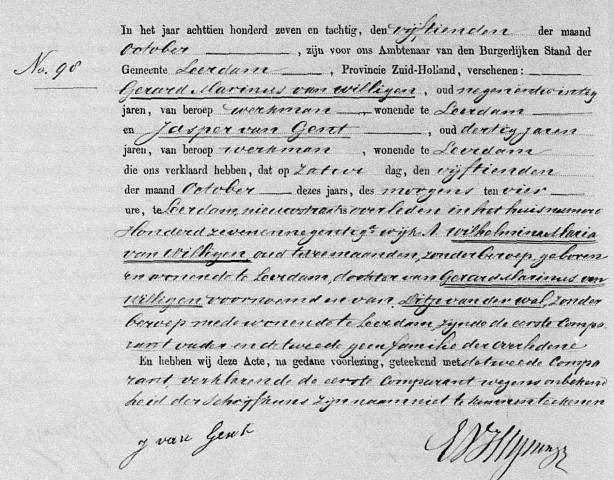 In het jaar achttien honderd zeven en tachtig, den vijftienden der maand
October, zijn voor ons Ambtenaar van den Burgerlijken Stand der
No. 98
Gemeente Leerdam, Provincie Zuid-Holland, verschenen:
Gerard Marinus van Willigen, oud negenentwintig
jaren, van beroep werkman, wonende te Leerdam
en Jasper van Gent, oud dertig jaren
jaren, van beroep werkman, wonende te Leerdam
die ons verklaard hebben, dat op Zatur dag, den vijftienden
der maand October dezes jaars, des morgens ten vier
ure, te Leerdam, nieuwstraat is overleden in het huis numero
Honderd zevenennegentig wijk A. Wilhelmina Maria
van Willigen oud twee maanden, zonder beroep, geboren
en wonende te Leerdam, dochter van Gerard Marinus van
Willigen voornoemd en van Ditje van der Wal, zonder
beroep mede wonende te Leerdam, zijnde de eerste Compa
rant vader en de tweede geen familie der Overledene
En hebben wij deze Acte, na gedane voorlezing, geteekend met de tweede Compa
rant verklarende de eerste Comparant wegens onbekend
heid der Schrijfkunst zijn naam niet te kunnen teekenen
J van Gent